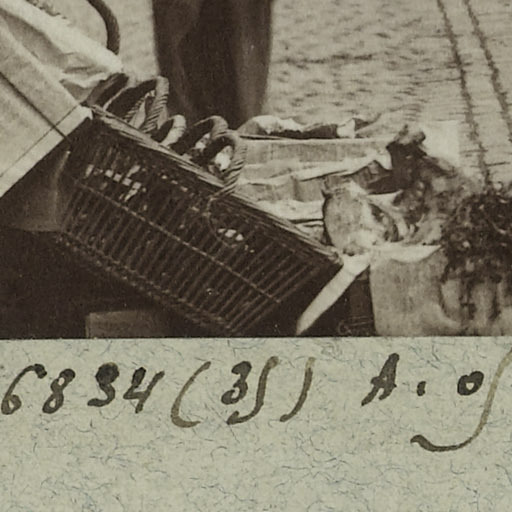 6834 (35) A. of